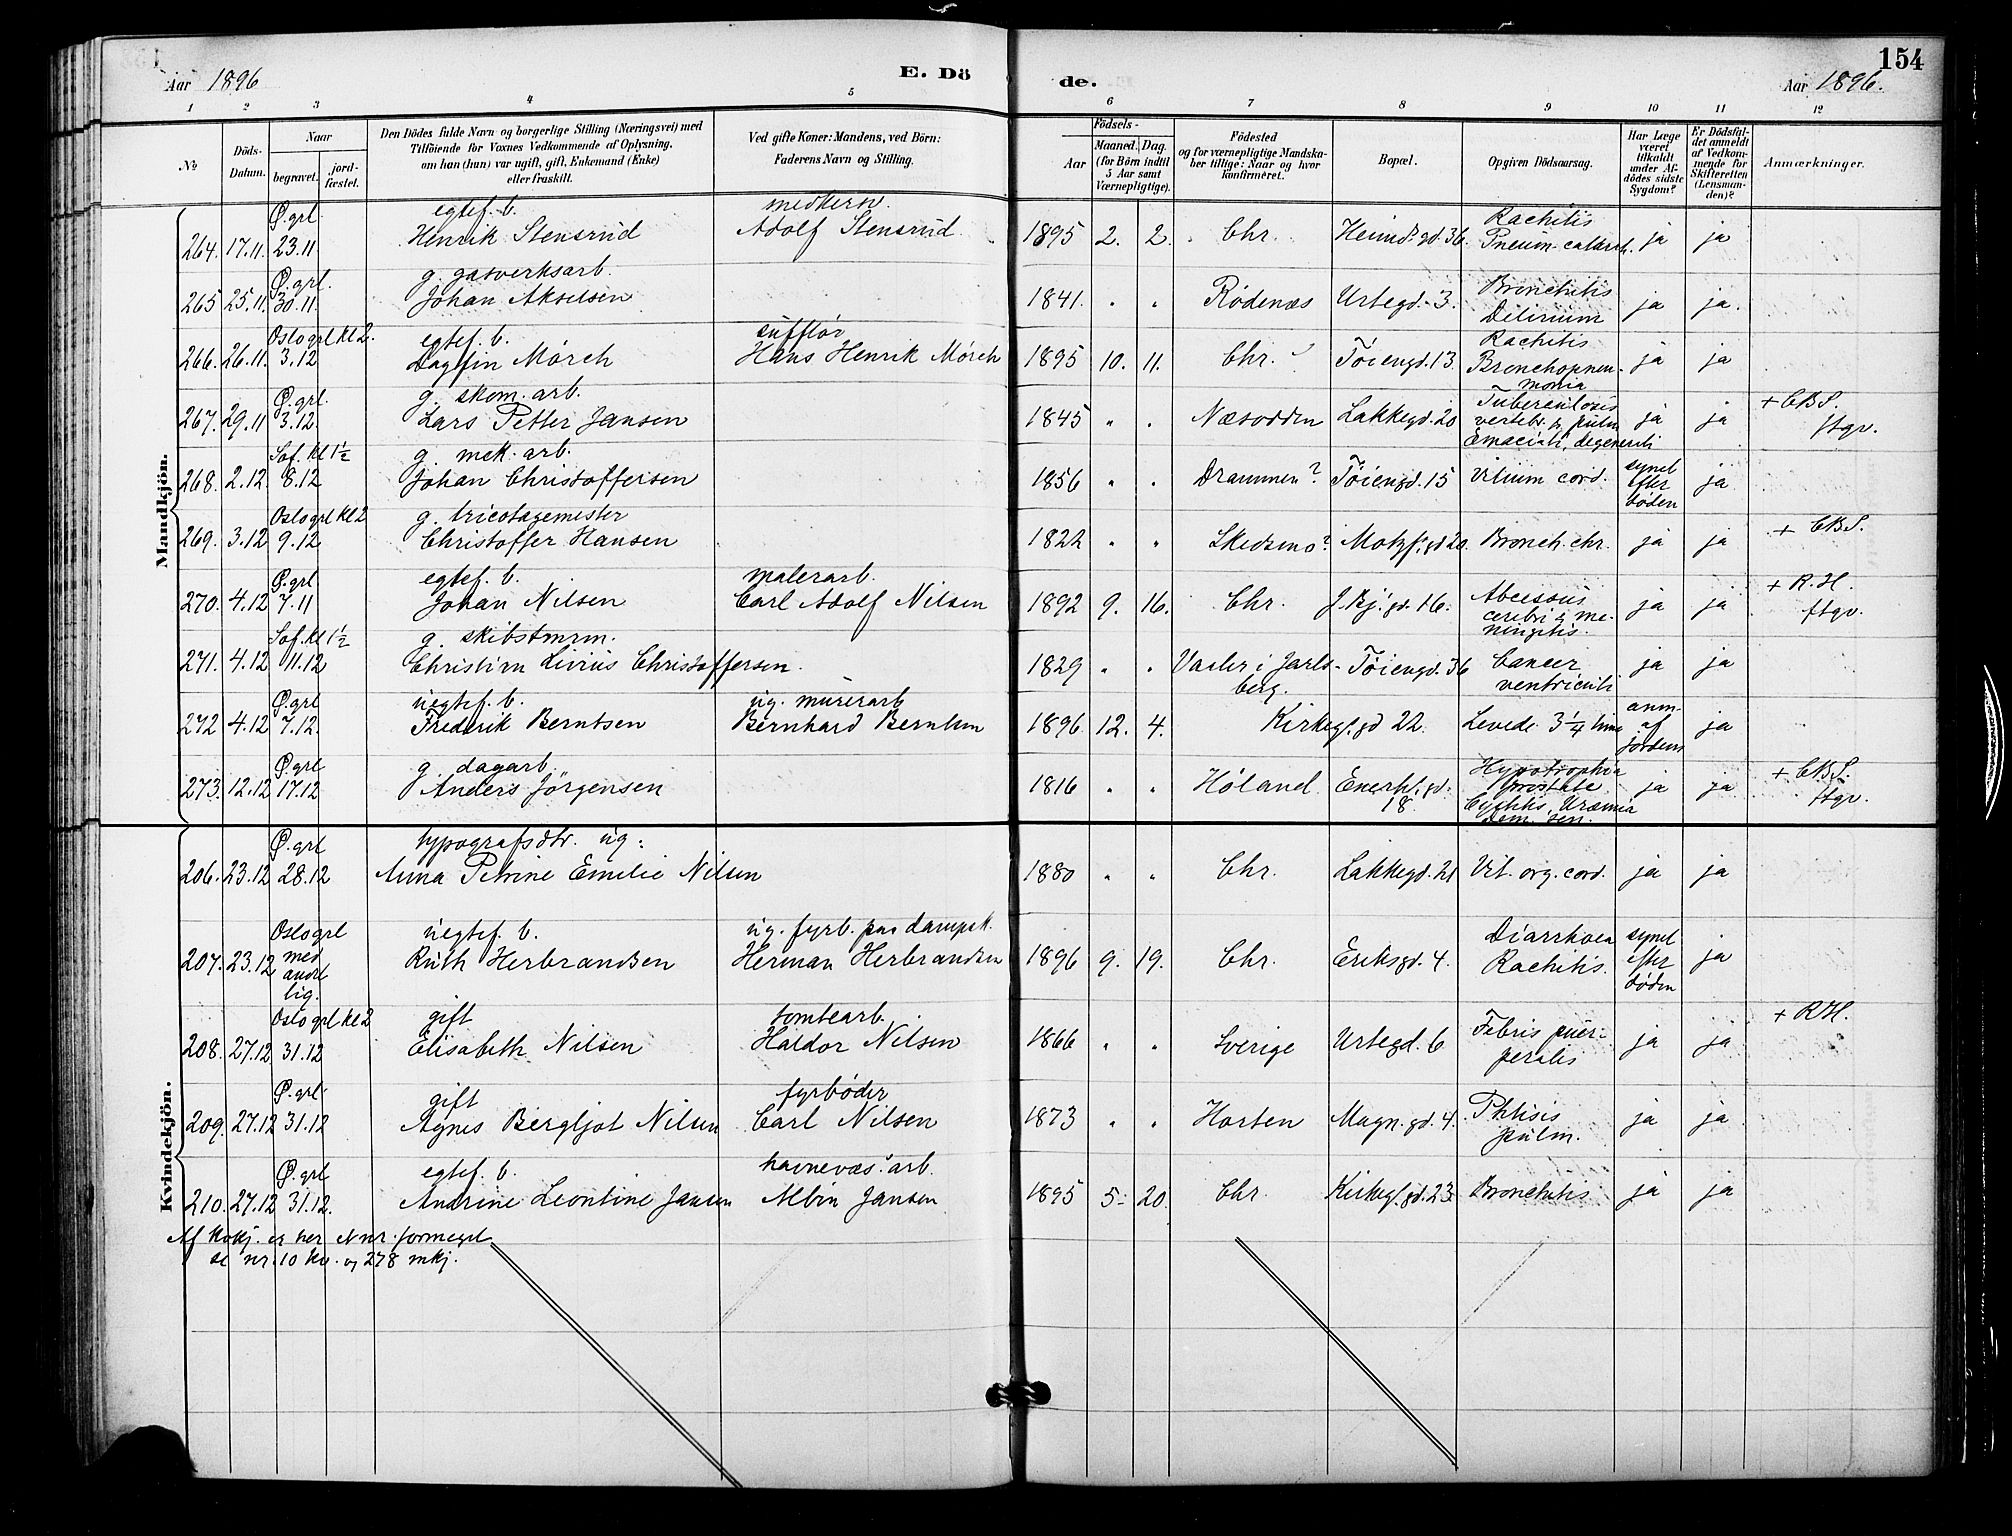 154
Aar 1896
E. Dö de.
Aar 1896.
1 2 3 4 5 6 7 8 9 10 11 12
No
Döds-Datum.
Naar
begravet.
jord-fæstet.
Den Dödes fulde Navn og borgerlige Stilling (Næringsvei) med
Tilföiende for Voxnes Vedkommende af Oplysning,
om han (hun) var ugift, gift, Enkemand (Enke)
eller fraskilt.
Ved gifte Koner: Mandens, ved Börn:
Faderens Navn og Stilling.
Födsels-
Aar
Maaned. Dag.
(for Börn indtil
5 Aar samt
Værnepligtige).
Födested
og for værnepligtige Mandska-
ber tillige: Naar og hvor
konfirmeret.
Bopæl.
Opgiven Dödsaarsag.
Har Læge
været
tilkaldt
under Af-
dödes sidste
Sygdom?
Er Dödsfal-
det anmeldt
af Vedkom-
mende for
Skifteretten
(Lensman-
den)?
Anmærkninger.
Mandkjön.
Ø.grl. egtef. b.
264. 17.11. 23.11 Henrik Stensrud Adolf Stensrud 1895 2. 2. Chr. Heimd. gd. 36. Rachitis Pneum. catarrh. ja ja
Ø.grl. g. gasverksarb.
265 25.11. 30.11 Johan Akselsen 1841. " " Rødenæs Urtegd. 3. Bronchitis Delirium ja ja.
Oslo grl kl 2. egtef. b. sufflør
266. 26.11. 3.12 Dagfin Mörch Hans Henrik Mörch 1895 10. 11. Chr. Töiengd. 13. Rachitis Bronchopneu-monia ja ja
Ø.grl. g. skom. arb.
267. 29.11 3.12 Lars Petter Jansen 1845 " " Næsodden Lakkegd. 20 Tuberculosis vertebr. & pulm Emaciati, degenerati ja ja + CBS. ftgr.
Sof. kl 1½ g. mek. arb.
268. 2.12. 8.12 Johan Christoffersen 1856 " " Drammen? Töiengd. 15 Vitium cord. synet efter döden ja
Oslo grl kl 2 g. tricotagemester
269. 3.12 9.12 Christoffer Hansen 1822 " " Skedsmo? Motzf. gd 20. Bronch. chr. ja ja + CBS.
Ø.grl egtef. b. malerarb.
270. 4.12 7.11 Johan Nilsen Carl Adolf Nilsen 1892 9. 16. Chr. J. Bj. gd. 16. Abcessus cerebri & me-ningitis. ja ja + R.H. ftgr.
Sof. kl 1½ g. skibstmrm.
271. 4.12 11.12 Christian Livius Christoffersen. 1829 " " Vaaler i Jarls-berg. Töiengd. 36 Cancer ventriculi ja ja
Ø.grl uegtef. b. ug. murerarb.
272 4.12 7.12. Frederik Berntsen Bernhard Berntsen 1896 12. 4. Kirkegf. gd 22. Levede 3¼ time anm. af jordem ja
Ø.grl g. dagarb.
273. 12.12 17.12 Anders Jörgensen 1816 " " Höland Enerh. gd. 18. Hypotrophia prostate Cystitis, Uræmia Dem. sen. ja ja + CBS. ftgr.
Kvindekjön.
Ø.grl typografsdtr. ug.
206. 23.12 28.12 Anna Petrine Emilie Nilsen 1880 " " Chr. Lakkegd. 21 Vit. org. cord. ja ja
Oslo grl med andet lig. uegtef. b. ug. fyrb. paa dampsk.
207. 23.12 Ruth Herbrandsen Herman Herbrandsen 1896 9. 19. Chr. Eriksgd. 4. Diarrhoea Rachitis. synet efter döden ja
Oslo grl kl 2 gift tomtearb.
208. 27.12 31.12 Elisabeth Nilsen Haldor Nilsen 1866 " " Sverige Urtegd. 6 Febris puer-peralis ja ja + RH.
Ø.grl gift fyrböder
209. 27.12 31.12 Agnes Bergljot Nilsen Carl Nilsen 1873 " " Horten Magn. gd. 4. Phtisis pulm. ja ja
Ø.grl egtef. b. havnevæs. arb.
210. 27.12 31.12. Andrine Leontine Jansen Albin Jansen 1895 5. 20. Chr. Kirkegf. gd. 23 Bronchitis ja ja
Af kvkj. er her nr. formeget
se nr. 10 kv. og 278 mkj.